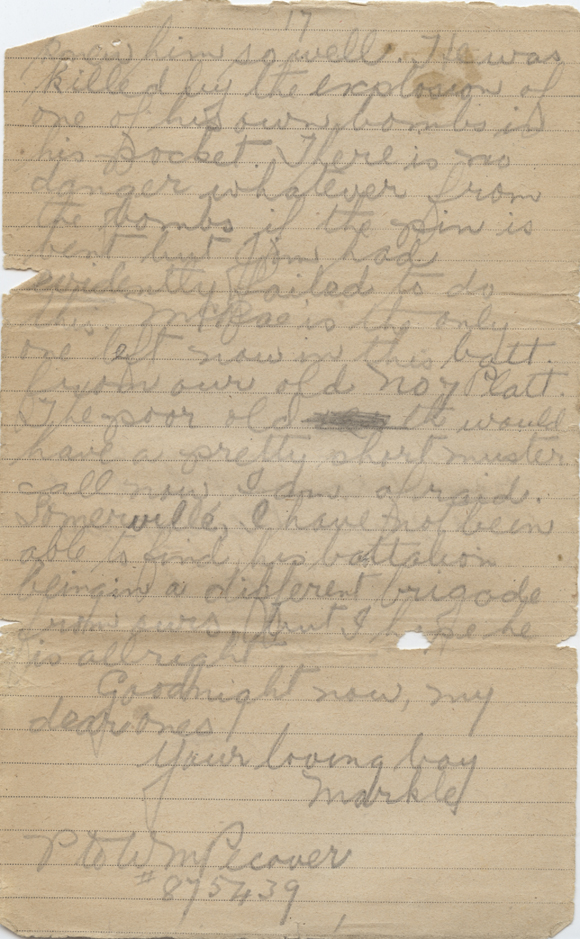 17
knew him so well. He was
killed by the explosion of
one of his own bombs in
his pocket. There is no
danger whatever from
the bombs if the pin is
bent but Jim had
evidently failed to do
this. McRae is the only
one left now in this batt.
from our old No 7 Platt.
The poor old would
have a pretty short muster
call now I am afraid.
Somerville, I have not been
able to find, his battalion
being in a different brigade
from ours, but I hope he
is allright
Goodnight now, my
dear ones
Your loving boy
Markle
Pte W M Pecover
#875439